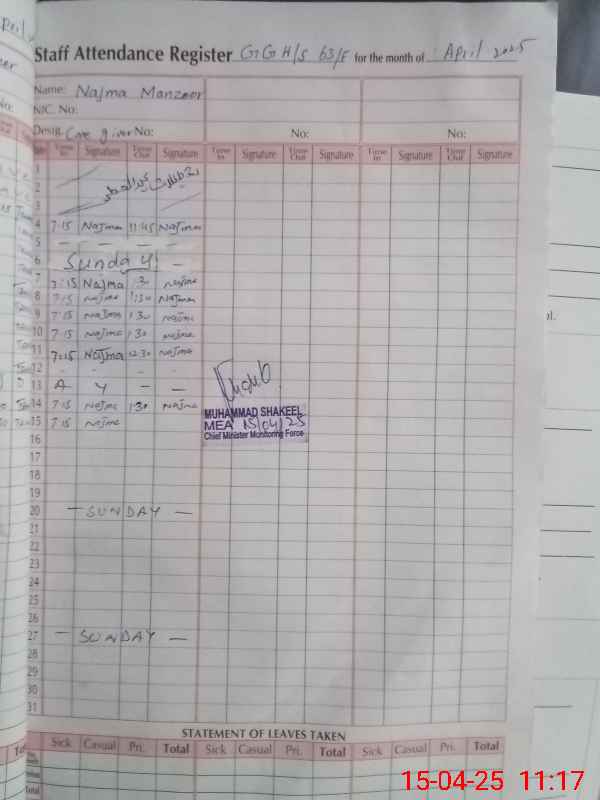 Staff Attendance Register GGH/S 63/F for the month of April 2025
Name: Najma Manzoor
N/C. No:
Desig: Care giver No: No: No:
Date Time In Signature Time Out Signature Time In Signature Time Out Signature Time In Signature Time Out Signature
1
2 تعطیلات عیدالفطر
3
4 7:15 Najma 11:45 Najma
5 - - - -
6 Sunday -
7 7:15 Najma 1:30 Najma
8 7:15 Najma 1:30 Najma
9 7:15 Najma 1:30 Najma
10 7:15 Najma 1:30 Najma
11 7:15 Najma 12:30 Najma
12 - - - -
13 - -
14 7:15 Najma 1:30 Najma
15 7:15 Najma
MUHAMMAD SHAKEEL
MEA 15/04/25
Chief Minister Monitoring Force
16
17
18
19
20 - SUNDAY -
21
22
23
24
25
26
27 - SUNDAY -
28
29
30
31
STATEMENT OF LEAVES TAKEN
Sick Casual Pri. Total Sick Casual Pri. Total Sick Casual Pri. Total
Total
15-04-25 11:17